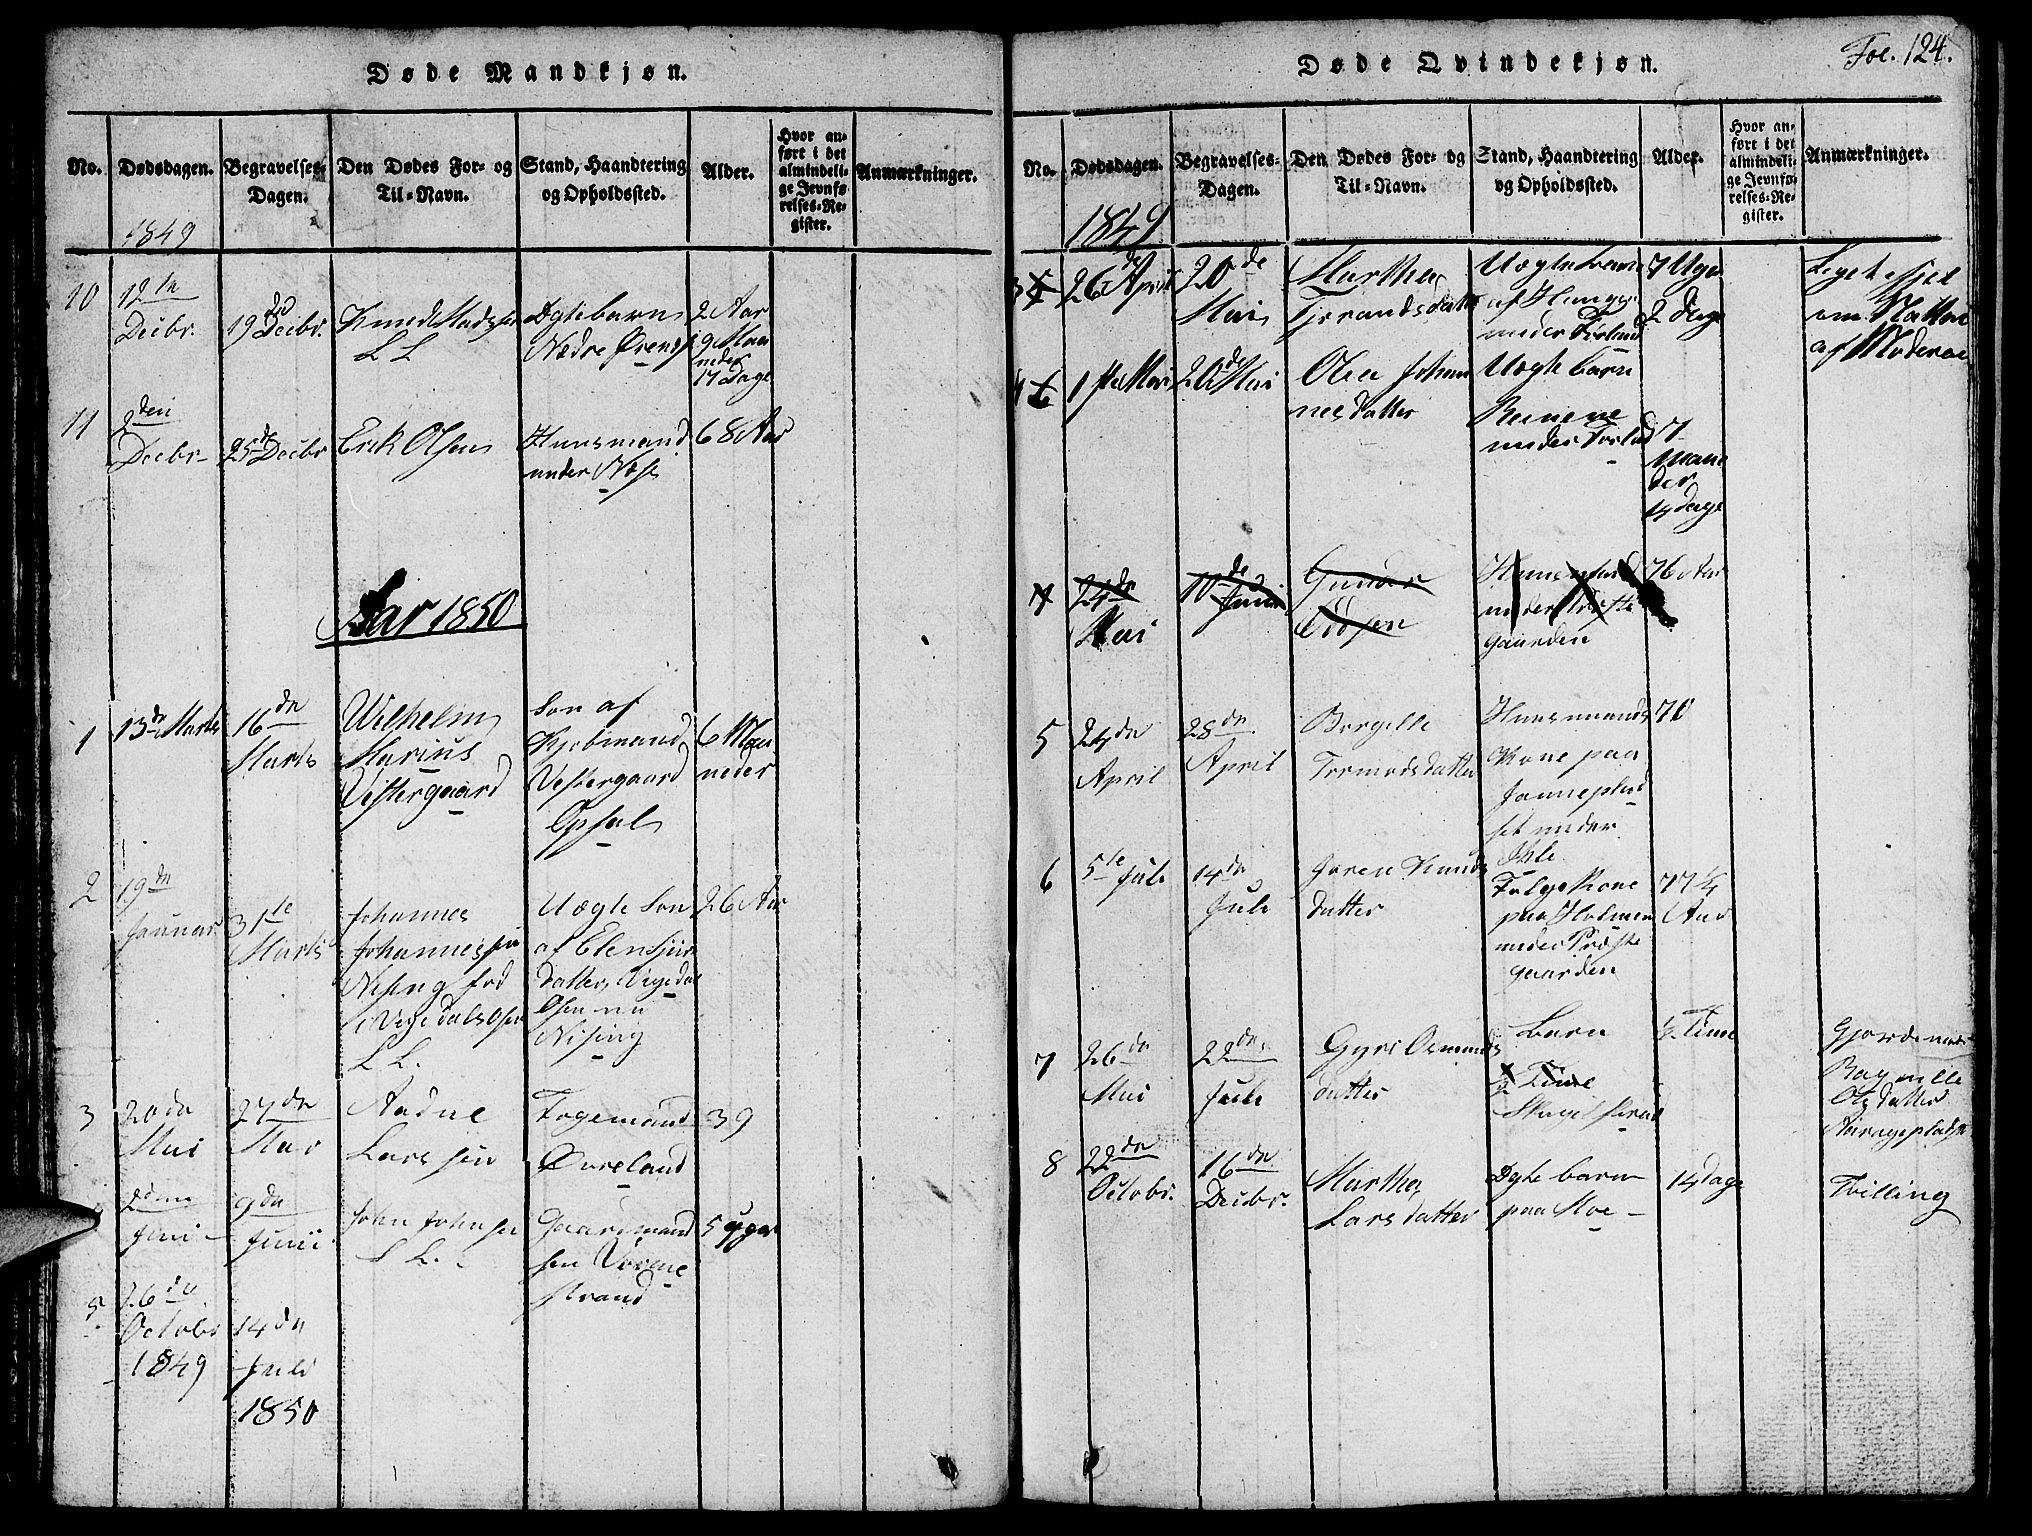 Døde Mandkjøn.
No.
Dødsdagen.
Begravelses-
Dagen.
Den Dødes For- og
Til-Navn.
Stand, Haandtering
og Opholdssted.
Alder.
Hvor an-
ført i det
almindeli-
ge Jevnfø-
relses-Re-
gister.
Anmærkninger.
1849
10
12te
Decbr.
19de Decbr.
Knud Madssen
L L
Ægtebarn
Nedre
2 Aar
9 Maa
neder
17 Dage
11
2den
Decbr
25de Decbr
Erik Olsen
Huusmand
under Næsse
68 Aar
Aar 1850
1
13de Marts
16de
Marts
Wilhelm
Marius
Vestergaard
Søn af
Kjøbmand
Vestergaard
Opsal
6 Maa
neder
2
19de
Januar
31te
Marts
Johannes
Johannessen
Nising fød
i Vegedalsosen
L L.
Uægte Søn
af Elen Sjur
datter, Vigedal
Osen nu
Nising
26 Aar
3
20de
Mai
27de
Mai
Aadne
Larssen
Togemand
Øvreland
39
2den
Juni
9de
Junii
John Johnsen
L L.
Gaardmand
søn Vorme
strand
5 Uger
5
26de
Octobr
1849
14de
Juli
1850
Døde Qvindekjøn.
Fol. 124.
No.
Dødsdagen.
Begravelses-
Dagen.
Den Dødes For- og
Til-Navn.
Stand, Haandtering
og Opholdssted.
Alder.
Hvor an-
ført i det
almindeli-
ge Jevnfø-
relses-Re-
gister.
Anmærkninger.
1849
3
26de April
20de
Mai
Martha
Tjerandsdatter
Uægte barn
af Hauge
under Førland
7 Uger
2 Dage
Liget
om Natten
af Moderen
4
1ste Mai
20de Mai
Olea Johan
nesdatter
Uægte barn
Reinene
under
7
Maane
der
14 Dage
24de
Mai
10de
Juni
Gunar
Huusmand
under Præste
gaarden
76 Aar
5
24de
April
28de
April
Borgille
Tormodsdatter
Huusmands
Kone paa
Janneplad
set under
70
6
5te Juli
14de
Juli
Joren Knuds
datter
Følge Kone
paa Holmen
under Præste
gaarden
77 ¼
Aar
7
26de
Mai
22de
Juli
Gyri Osmunds
datter
Barn
½ Time
½ Time
Gjordemoder
Ragnille
datter
8
22de
Octobr.
16de
Decbr.
Martha
Larsdatter
Ægte barn
paa Moe
14 Dage
Tvilling